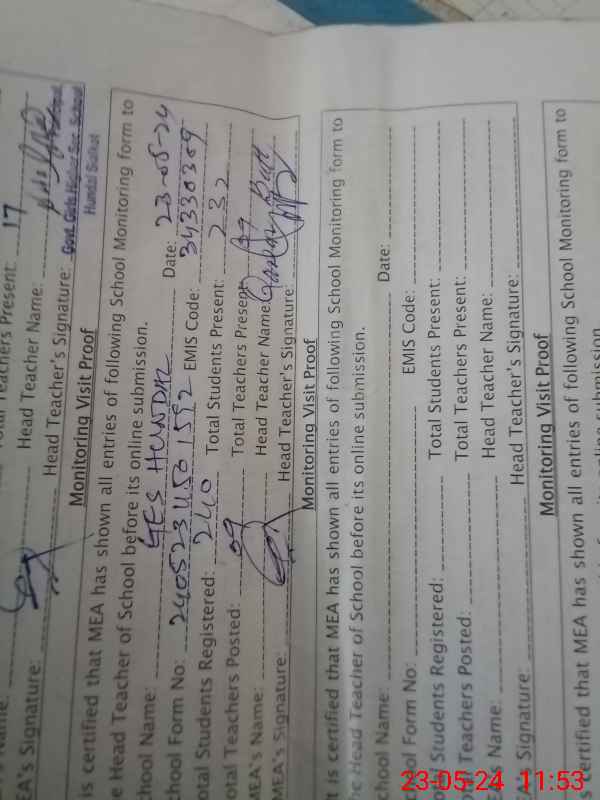 Total Teachers Present: 17
Head Teacher Name:
EA's Signature: Head Teacher's Signature:
Govt. Girls Higher Sec. School
Hundal Sialkot
Monitoring Visit Proof
is certified that MEA has shown all entries of following School Monitoring form to
e Head Teacher of School before its online submission.
chool Name: GES HUNDAL Date: 23-05-24
chool Form No: 240523450 1592 EMIS Code: 34330309
otal Students Registered: 240 Total Students Present: 232
otal Teachers Posted: 09 Total Teachers Present: 09
MEA's Name: Head Teacher Name:
MEA's Signature: Head Teacher's Signature:
Monitoring Visit Proof
t is certified that MEA has shown all entries of following School Monitoring form to
he Head Teacher of School before its online submission.
chool Name: Date:
chool Form No: EMIS Code:
otal Students Registered: Total Students Present:
otal Teachers Posted: Total Teachers Present:
's Name: Head Teacher Name:
Signature: Head Teacher's Signature:
Monitoring Visit Proof
s certified that MEA has shown all entries of following School Monitoring form to
online submission
23-05-24 11:53